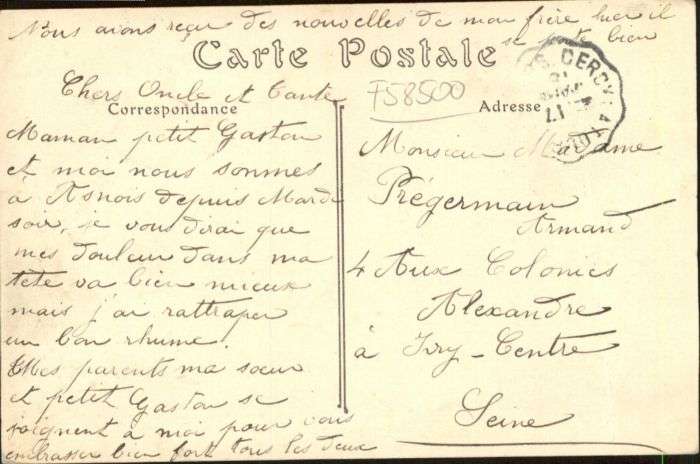 Nous avons reçu des nouvelles de mon frère hier il
se porte bien
Carte Postale
Chers Oncle et Tante
F58500
Correspondance
Adresse
Maman petit Gaston
et moi nous sommes
à Asnois depuis Mardi
soir, je vous dirai que
mes douleur dans ma
tete va bien mieux
mais j'ai rattraper
un bon rhume.
Mes parents ma soeur
et petit Gaston se
joignent à moi pour vous
embrasser bien fort tous les deux
Monsieur Madame
Prégermain
Armand
4 Aux Colonies
Alexandre
à Ivry-Centre
Seine